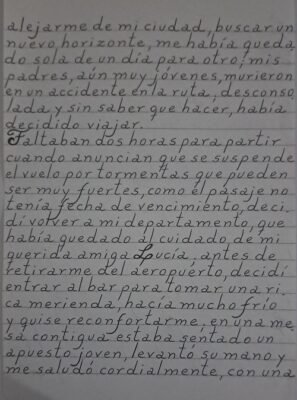 alejarme de mi ciudad, buscar un
nuevo horizonte, me había queda
do sola de un día para otro, mis
padres, aún muy jóvenes, murieron
en un accidente en la ruta, descorso
lada y sin saber que hacer, había
decidido viajar.
Faltaban dos horas para partir
cuando anuncian que se suspende
el vuelo por tormentas que pueden
ser muy fuertes, como el pasaje no
tenía fecha de vencimiento, deci_
dí volver a mi departamento, que
había quedado al cuidado de mi
querida amiga Lucía, antes de
retirarme del aeropuerto, decidí
entrar al bar para tomar una ri_
ca merienda, hacía mucho frío
y quise reconfortarme, en una me_
sa contigua estaba sentado un
apuesto joven, levantó su mano y
me saludó cordialmente, con una